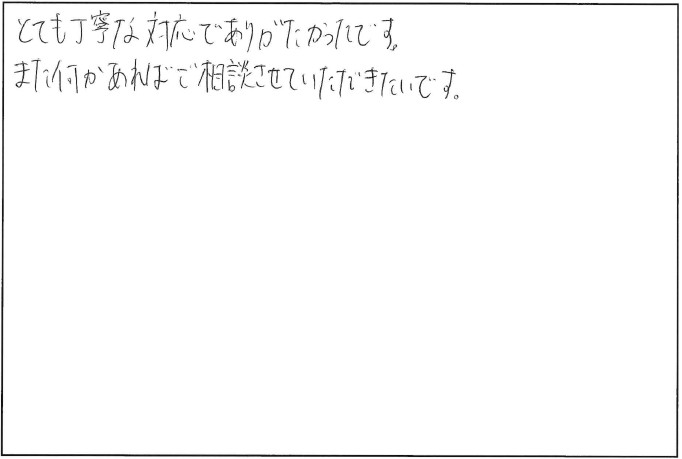 とても丁寧な対応でありがたかったです。
また何かあればご相談させていただきたいです。